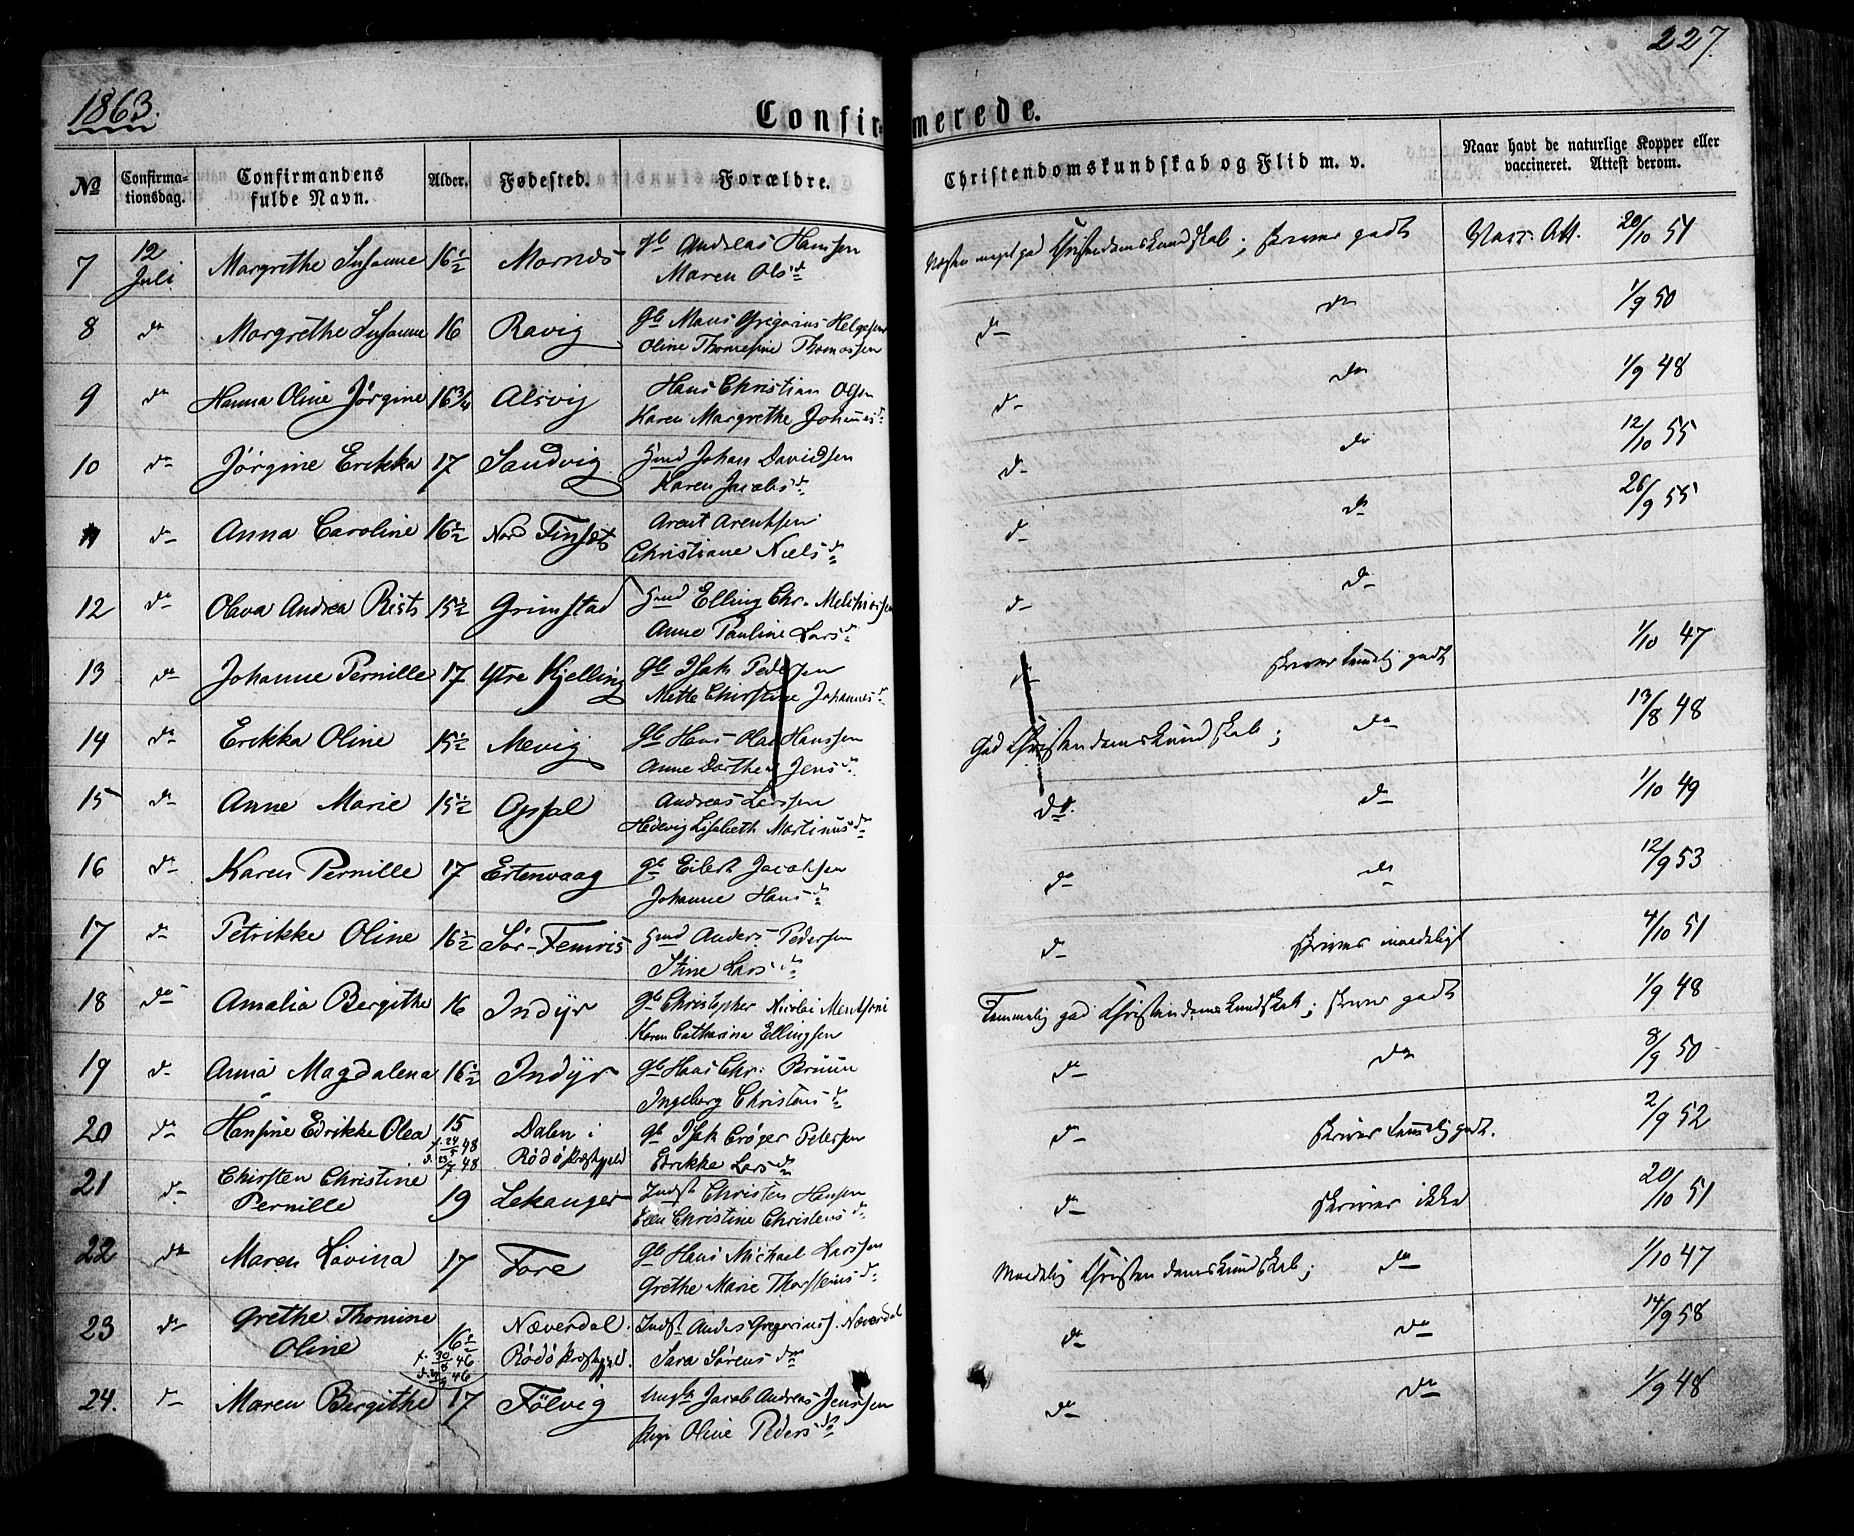 1863.
227.
Confirmerede.
No Confirmationsdag. Confirmandens fulde Navn. Alder. Fødested. Forældre. Christendomskundskab og Flid m. v. Naar havt de naturlige Kopper eller vaccineret. Attest derom.
7 12 Juli Margrethe Susanne 16½ Mornes Gb Andreas Hanssen
Maren Olsd. Christendomskundskab; skriver godt Vacc. Att. 20/10 51
8 do Margrethe Susanne 16 Ravig Gb Mons Gregorius Helgesen
Oline Thomesine Thomassen do do 1/9 50
9 do Hanna Oline Jørgine 16¾ Alsvig Hans Christian Olsen
Karen Margrethe Johannesd. do do 1/9 48
10 do Jørgine Erikka 17 Sandvig Gmd Johan Davidsen
Karen Jacobsd. do do 12/10 55
11 do Anna Caroline 16½ Nord Finset Arent Arentsen
Christiane Nielsd. do do 26/9 55
12 do Olava Andrea Rist 15½ Grimstad Gmd Elling Chr. Melchiorsen
Anne Pauline Larsd. do do
13 do Johanne Pernille 17 Ytre Kjelling Gb Isak Pedersen
Mette Chirstine Johannesd. do skriver temmelig godt 1/10 47
14 do Erikka Oline 15½ Mevig Gb Hans Olai Hanssen
Anne Dorthea Jensd. God Christendomskundskab; do 13/8 48
15 do Anne Marie 15½ Opsal Andreas Larssen
Hedevig Lisabeth Martinusd. do. do 1/10 49
16 do Karen Pernille 17 Ertenvaag Gb Eilert Jacobsen
Johanne Hansd. do do 12/9 53
17 do Petrikke Oline 16½ Sør-Femris Gmd Anders Pedersen
Stine Larsd. do skriver maadeligt 4/10 51
18 do Amalia Bergithe 16 Indyr Gb Christopher Nicolai Mentsoni
Karen Catharina Ellingsen Temmelig god Christendomskundskab; skriver godt 1/9 48
19 do Anna Magdalena 16½ Indyr Gb Hans Chr. Bruun
Ingeborg Christensd. do do 8/9 50
20 do Hansine Edrikke Olea 15 f. 24/5 48 d. 23/7 48 Dalen i
Rødø Præstegjeld Gb Isak Crøger Petersen
Edrikke Larsd. do skriver temmelig godt. 2/9 52
21 do Chirsten Christine
Pernille 19 Lekanger Indst Christen Hansen
Ellen Christine Christensd. do skriver ikke 20/10 51
22 do Maren Lovina 17 Fore Gb Hans Michael Larssen
Grethe Marie Thorstensd. Maadelig Christendomskundskab; do 1/10 47
23 do Grethe Thomine
Oline 16½ Næverdal.
Rødø Præstegjeld. Indst Anders Gregoriuss. Næverdal
Sara Sørensd. do do 14/9 58
24. do Maren Bergithe 17 Følvig Ungk Jacob Andreas Jenssen
Pige Oline Pedersd. do do 1/9 48